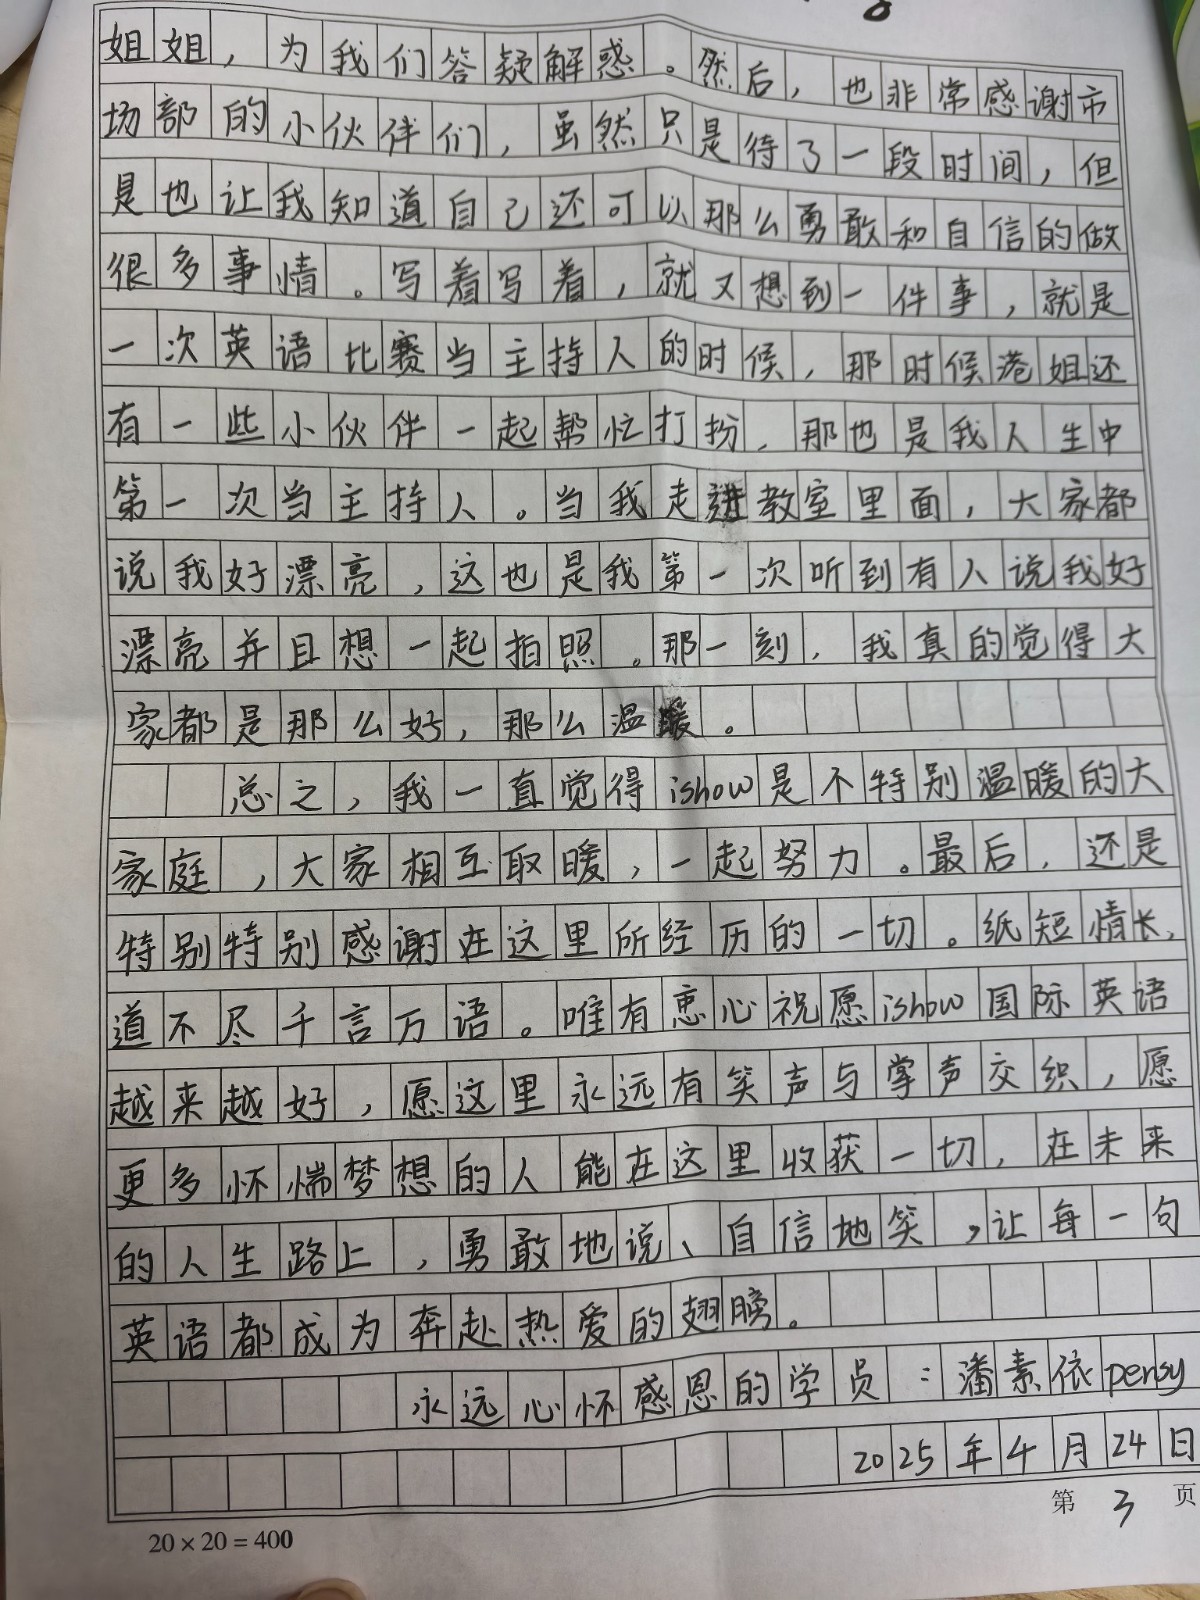 姐姐，为我们答疑解惑。然后，也非常感谢市
场部的小伙伴们，虽然只是待了一段时间，但
是也让我知道自己还可以那么勇敢和自信的做
很多事情。写着写着，就又想到一件事，就是
一次英语比赛当主持人的时候，那时候港姐还
有一些小伙伴一起帮忙打扮，那也是我人生中
第一次当主持人。当我走进教室里面，大家都
说我好漂亮，这也是我第一次听到有人说我好
漂亮并且想一起拍照。那一刻，我真的觉得大
家都是那么好，那么温暖。
总之，我一直觉得ishow是不特别温暖的大
家庭，大家相互取暖，一起努力。最后，还是
特别特别感谢在这里所经历的一切。纸短情长，
道不尽千言万语。唯有衷心祝愿ishow国际英语
越来越好，愿这里永远有笑声与掌声交织，愿
更多怀惴梦想的人能在这里收获一切，在未来
的人生路上，勇敢地说、自信地笑，让每一句
英语都成为奔赴热爱的翅膀。
永远心怀感恩的学员：潘素依pensy
2025年4月24日
第3页
20×20=400